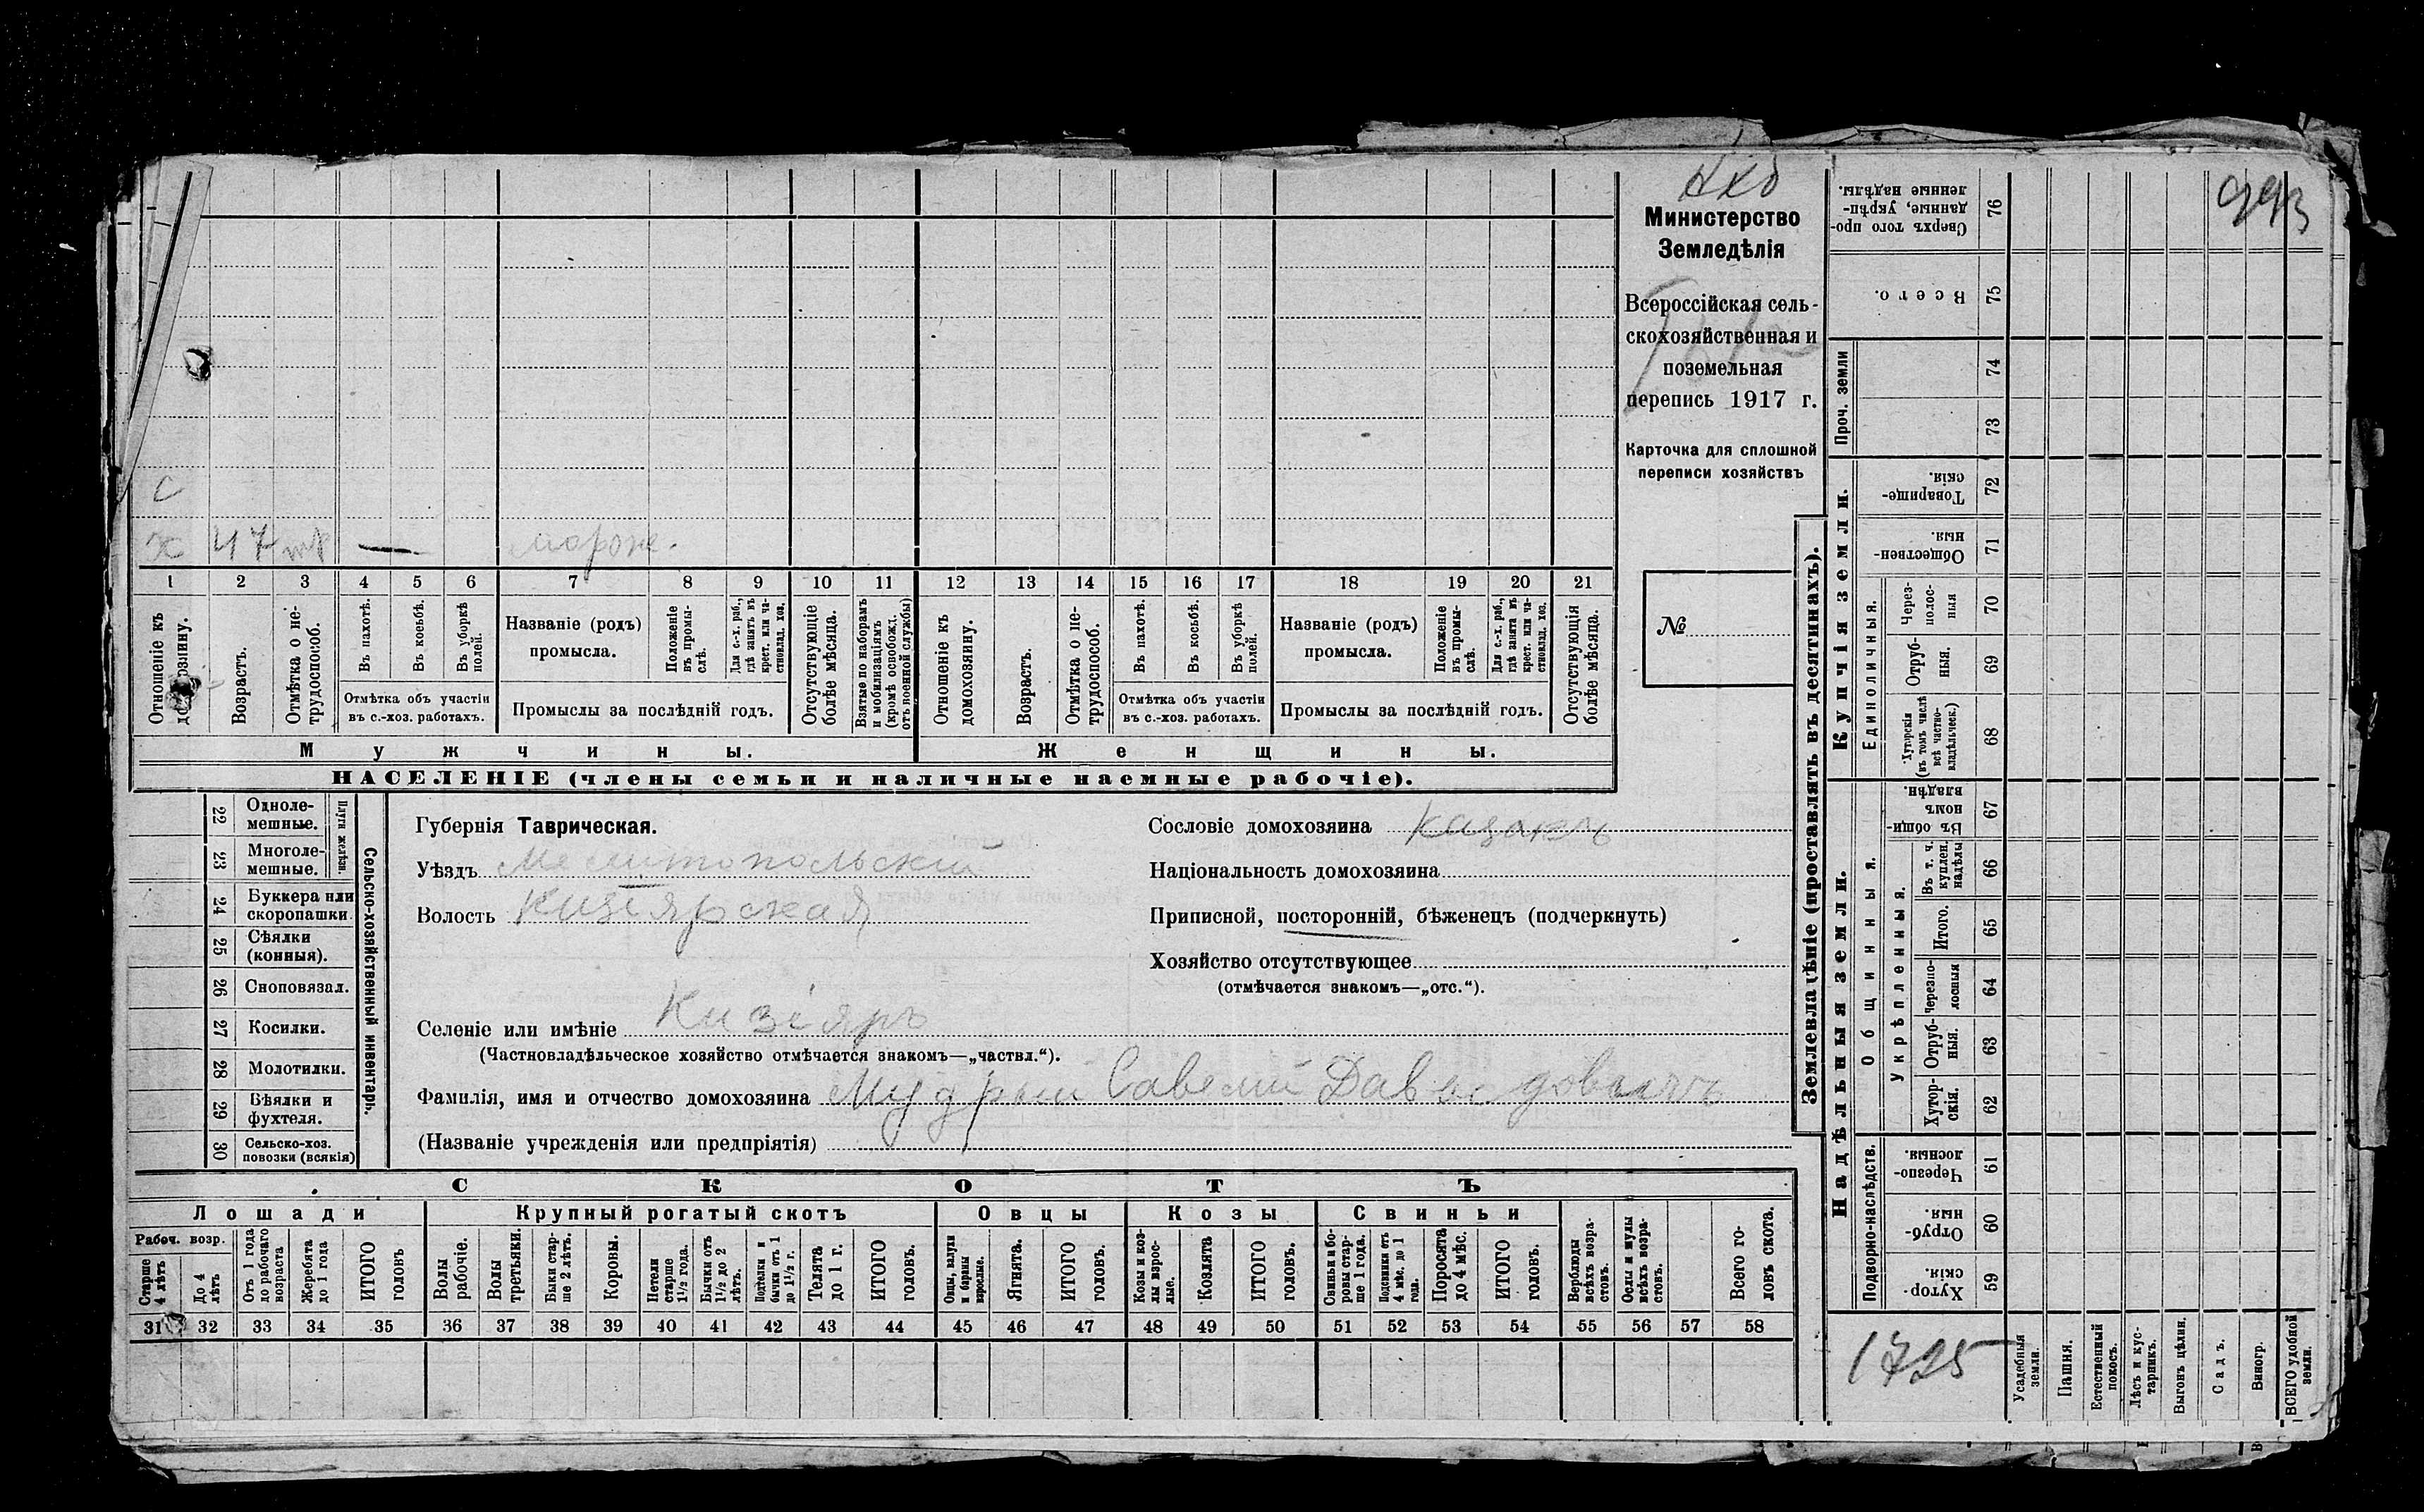 нхо
993
Министерство
Земледѣлія
Всероссійская сель-
скохозяйственная и
поземельная
перепись 1917 г.
Карточка для сплошной
переписи хозяйствъ
№
с
х 47 мр —
1 2 3 4 5 6 7 8 9 10 11 12 13 14 15 16 17 18 19 20 21
Отношеніе къ домохозяину.
Возрастъ.
Отмѣтка о не-
трудоспособ.
Въ пахотѣ.
Въ косьбѣ.
Въ уборкѣ
полей.
Отмѣтка объ участіи
въ с.-хоз. работахъ.
Названіе (родъ)
промысла.
Положеніе
въ промы-
слѣ.
Для с.-х. раб.,
гдѣ занятъ въ
крест. или ча-
стновлад. хоз.
Промыслы за послѣдній годъ.
Отсутствующіе
болѣе мѣсяца.
Взятые по наборамъ
и мобилизаціямъ
(кромѣ освобожд.
отъ военной службы)
Отношеніе къ
домохозяину.
Возрастъ.
Отмѣтка о не-
трудоспособ.
Въ пахотѣ.
Въ косьбѣ.
Въ уборкѣ
полей.
Отмѣтка объ участіи
въ с.-хоз. работахъ.
Названіе (родъ)
промысла.
Положеніе
въ промы-
слѣ.
Для с.-х. раб.,
гдѣ занята въ
крест. или ча-
стновлад. хоз.
Промыслы за послѣдній годъ.
Отсутствующія
болѣе мѣсяца.
Мужчины.
Женщины.
НАСЕЛЕНІЕ (члены семьи и наличные наемные рабочіе).
22 Одноле-
мешные.
23 Многоле-
мешные.
Плуги желѣзн.
24 Буккера или
скоропашки.
25 Сѣялки
(конныя).
26 Сноповязал.
27 Косилки.
28 Молотилки.
29 Вѣялки и
фухтеля.
30 Сельско-хоз.
повозки (всякія)
Сельско-хозяйственный инвентарь.
Губернія Таврическая.
Уѣздъ Мелитопольскій
Волость Кизіярская
Селеніе или имѣніе Кизіяръ
(Частновладѣльческое хозяйство отмѣчается знакомъ—„частвл.“).
Фамилія, имя и отчество домохозяина Мудрый Савелий Давыдовичъ
(Названіе учрежденія или предпріятія)
Сословіе домохозяина казакъ
Національность домохозяина
Приписной, посторонній, бѣженецъ (подчеркнуть)
Хозяйство отсутствующее
(отмѣчается знакомъ—„отс.“).
СКОТЪ
Лошади
Крупный рогатый скотъ
Овцы
Козы
Свиньи
Рабоч. возр.
Старше
4 лѣтъ
До 4
лѣтъ
Отъ 1 года
до рабочаго
возраста
Жеребята
до 1 года
ИТОГО
головъ
Волы
рабочіе.
Волы
третьяки.
Быки стар-
ше 2 лѣтъ.
Коровы.
Нетели
старше
1½ года.
Бычки отъ
1½ до 2
лѣтъ.
Подтелки и
бычки отъ 1
до 1½ г.
Телята
до 1 г.
ИТОГО
головъ.
Овцы, валухи
и бараны
взрослые.
Ягнята.
ИТОГО
головъ.
Козы и коз-
лы взрос-
лые.
Козлята
ИТОГО
головъ.
Свиньи и бо-
ровы стар-
ше 1 года.
Подсвинки отъ
4 мѣс. до 1
года.
Поросята
до 4 мѣс.
ИТОГО
головъ.
Верблюды
всѣхъ возра-
стовъ.
Ослы и мулы
всѣхъ возра-
стовъ.
Всего го-
ловъ скота.
31 32 33 34 35 36 37 38 39 40 41 42 43 44 45 46 47 48 49 50 51 52 53 54 55 56 57 58
Землевладѣніе (проставлять въ десятинахъ).
Сверхъ того про-
данные, укрѣп-
ленные надѣлы.
76
Всего.
75
Проч. земли
74
73
Купчія земли.
Товарище-
скія
72
Обществен-
ныя
71
Единоличныя.
Черес-
полос-
ныя
70
Отруб-
ныя.
69
Хуторскія
(въ томъ числѣ
всѣ частно-
владѣльческ.)
68
Надѣльныя земли.
Общинныя.
Въ общин-
номъ
владѣн.
67
Укрѣпленныя.
Въ т. ч.
куплен.
надѣлы
66
Итого.
65
Черезпо-
лосныя
64
Отруб-
ныя.
63
Хутор-
скія.
62
Подворно-наслѣдств.
Черезпо-
лосныя.
61
Отруб-
ныя.
60
Хутор-
скія.
59
1725
Усадебныя
земли.
Пашня.
Естественный
покосъ.
Лѣсъ и кус-
тарникъ.
Выгонъ цѣлин.
Садъ.
Виногр.
ВСЕГО удобной
земли.